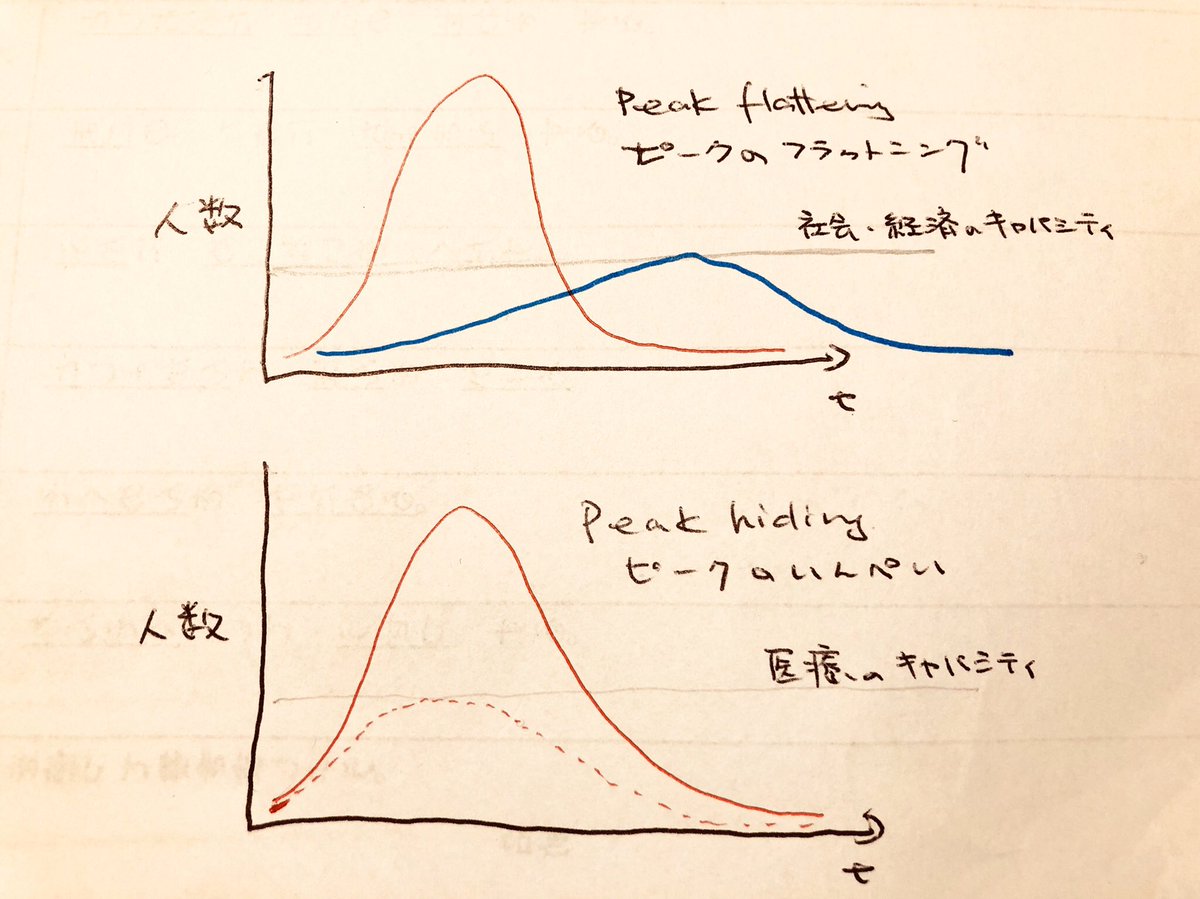 Peak flattening
ピークのフラットニング
人数
社会・経済のキャパシティ
t
Peak hiding
ピークのいんぺい
人数
医療のキャパシティ
t